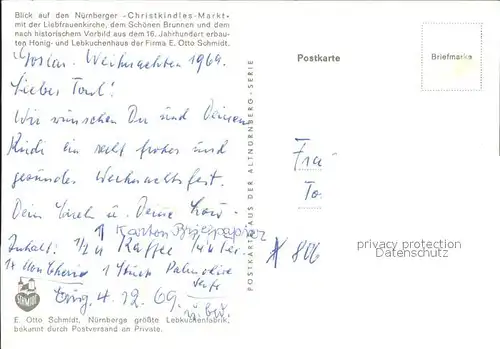 Blick auf den Nürnberger »Christkindles-Markt«
mit der Liebfrauenkirche, dem Schönen Brunnen und dem
nach historischem Vorbild aus dem 16. Jahrhundert erbau-
ten Honig- und Lebkuchenhaus der Firma E. Otto Schmidt.
Goslar. Weihnachten 1969.
Liebes
Wir wünschen Du und Deinem
Kindi ein recht frohes und
gesundes Weihnachtsfest.
Dein u. Deine
1 Karton Briefpapier
Inhalt: 1/2 Kaffee
1x Mon Cherie 1 Stück Palmolive
Seife
4. 12. 69.
u.
SCHMIDT
E. Otto Schmidt, Nürnbergs größte Lebkuchenfabrik,
bekannt durch Postversand an Private.
POSTKARTE AUS DER ALTNÜRNBERG-SERIE
Postkarte
Briefmarke
Frau
To
806
privacy protection
Datenschutz